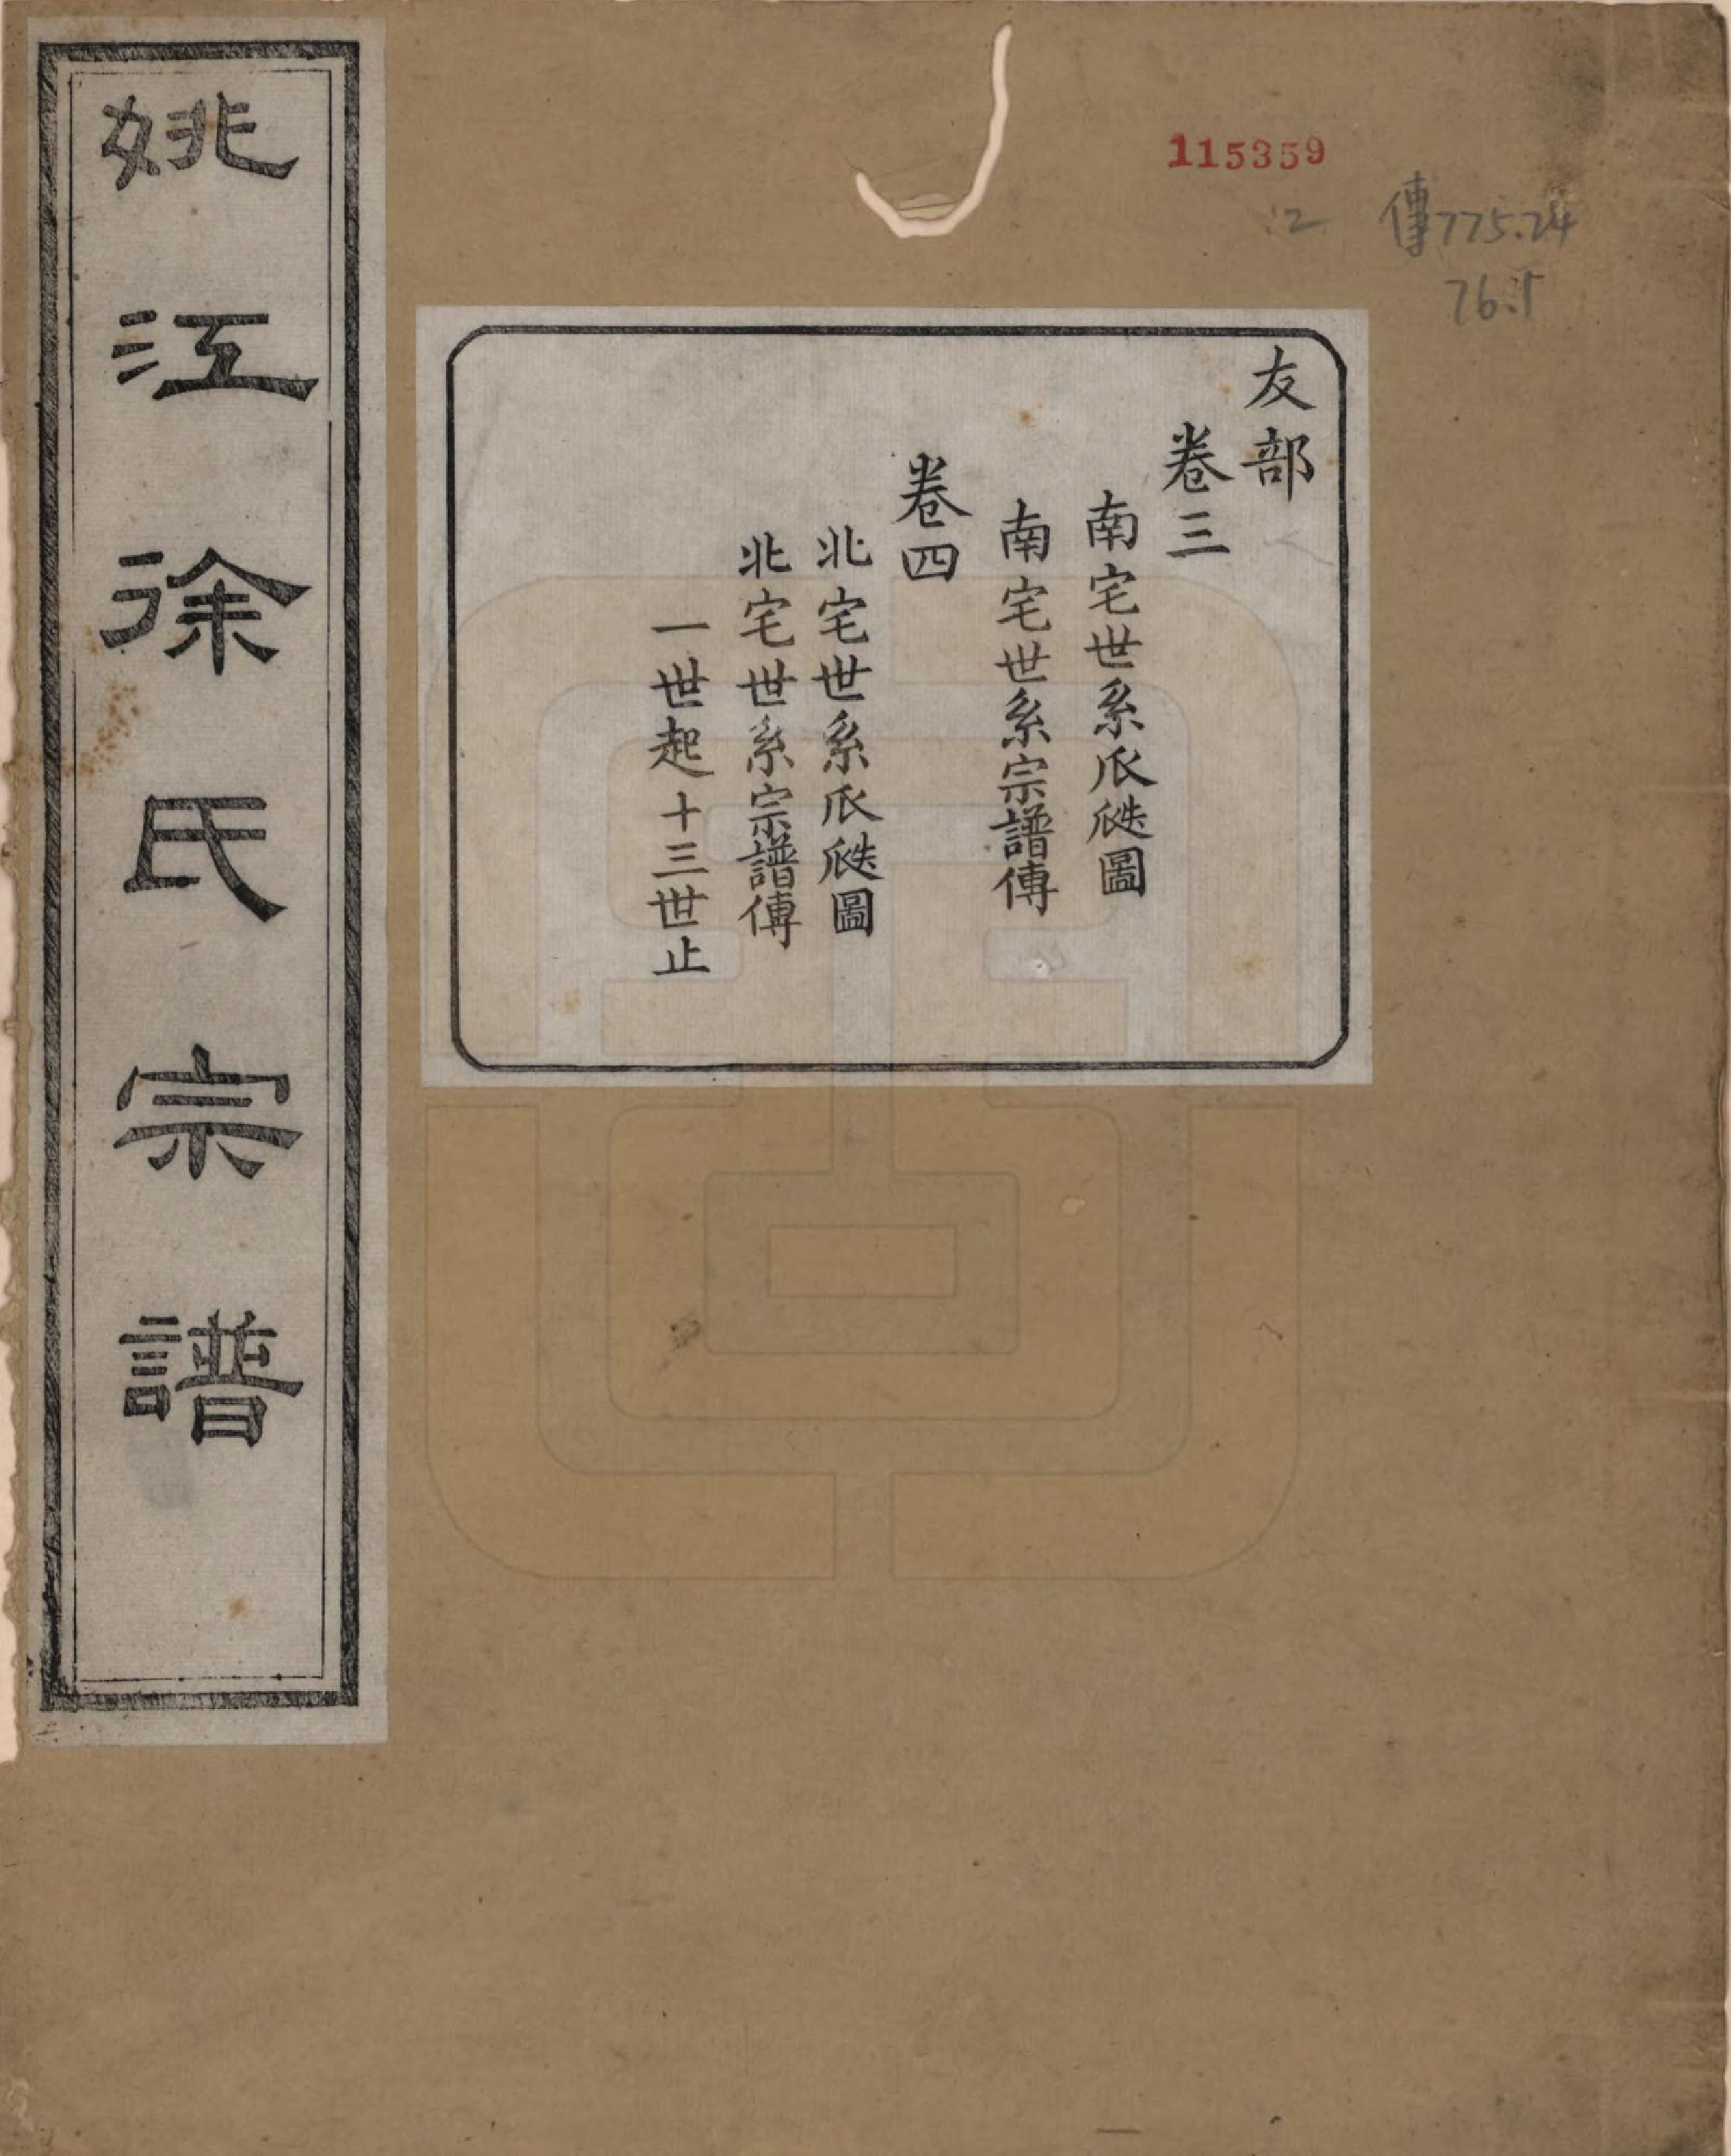 姚江徐氏宗譜
115359
傳775.24
76.1
友部
卷三
南宅世系瓜瓞圖
南宅世系宗譜傳
卷四
北宅世系瓜瓞圖
北宅世系宗譜傳
一世起十三世止